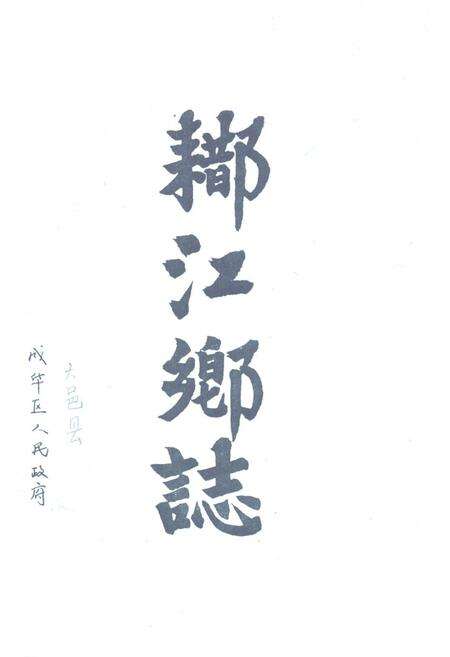 䣢江鄉誌
大邑县
成华区人民政府